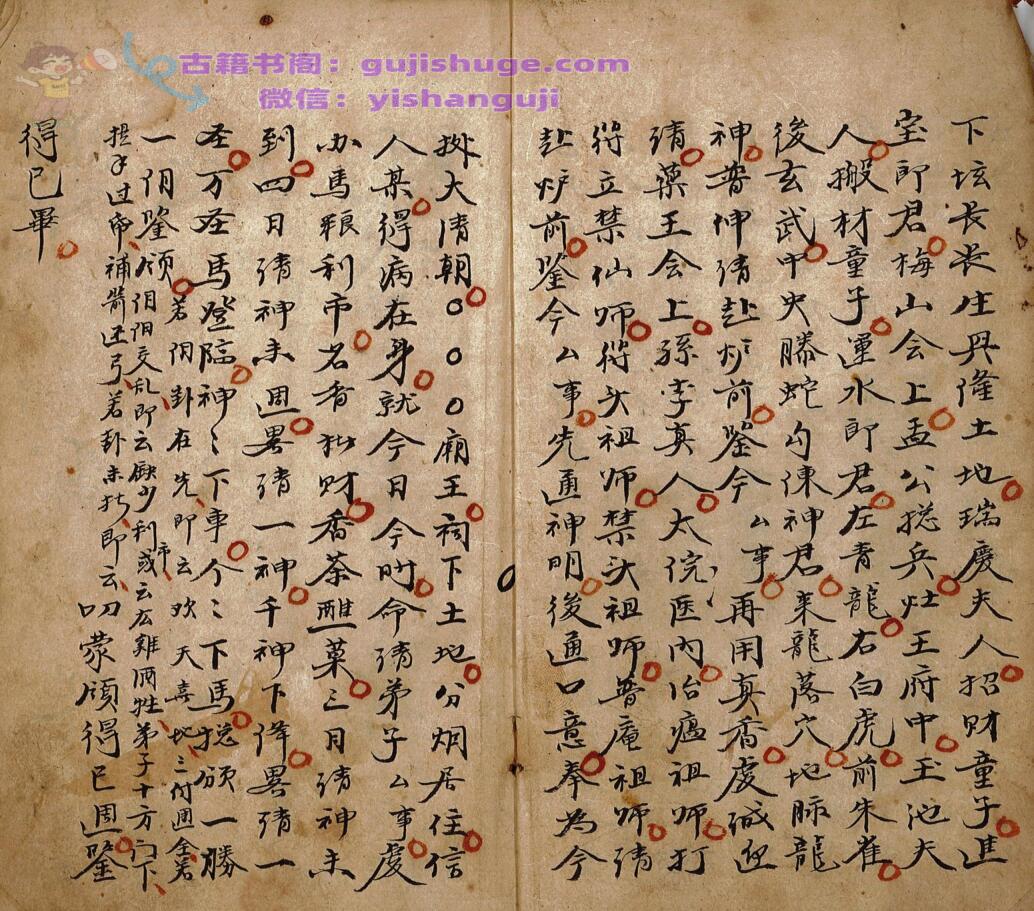 古籍书阁：gujishuge.com
微信：yishanguji
下坛长长庄兴隆土地瑞庆夫人招财童子进
宝郎君梅山会上孟公捴兵灶王府中玉池夫
人搬材童子運水郎君左青龍右白虎前朱雀
後玄武中央膝蛇勾陳神君来龍落穴地脉龍
神普伸请赴炉前鉴今厶事再用真香虔诚迎
请藥王会上孫李真人太院医内治瘟祖师打
符立禁仙师符头祖师禁头祖师普庵祖师请
赴炉前鉴今厶事先通神明後通口意奉为今
挨大清朝〇〇〇廟王祠下土地分烟居住信
人某得病在身就今日今时命请弟子厶事虔
办馬粮利市名香状财香茶醮菓三月请神未
到四日请神未週畧请一神千神下降畧请一
圣万圣馬登臨神〻下車个〻下馬捴颁一勝
一阴鉴领若阴卦在先即云欢天喜地三付週全若
阴阳交乱即云缺少利市或云在雞酒牲弟子十方门下
提手过帝補箭还弓若卦未折即云叨蒙领得已週鉴
得已畢